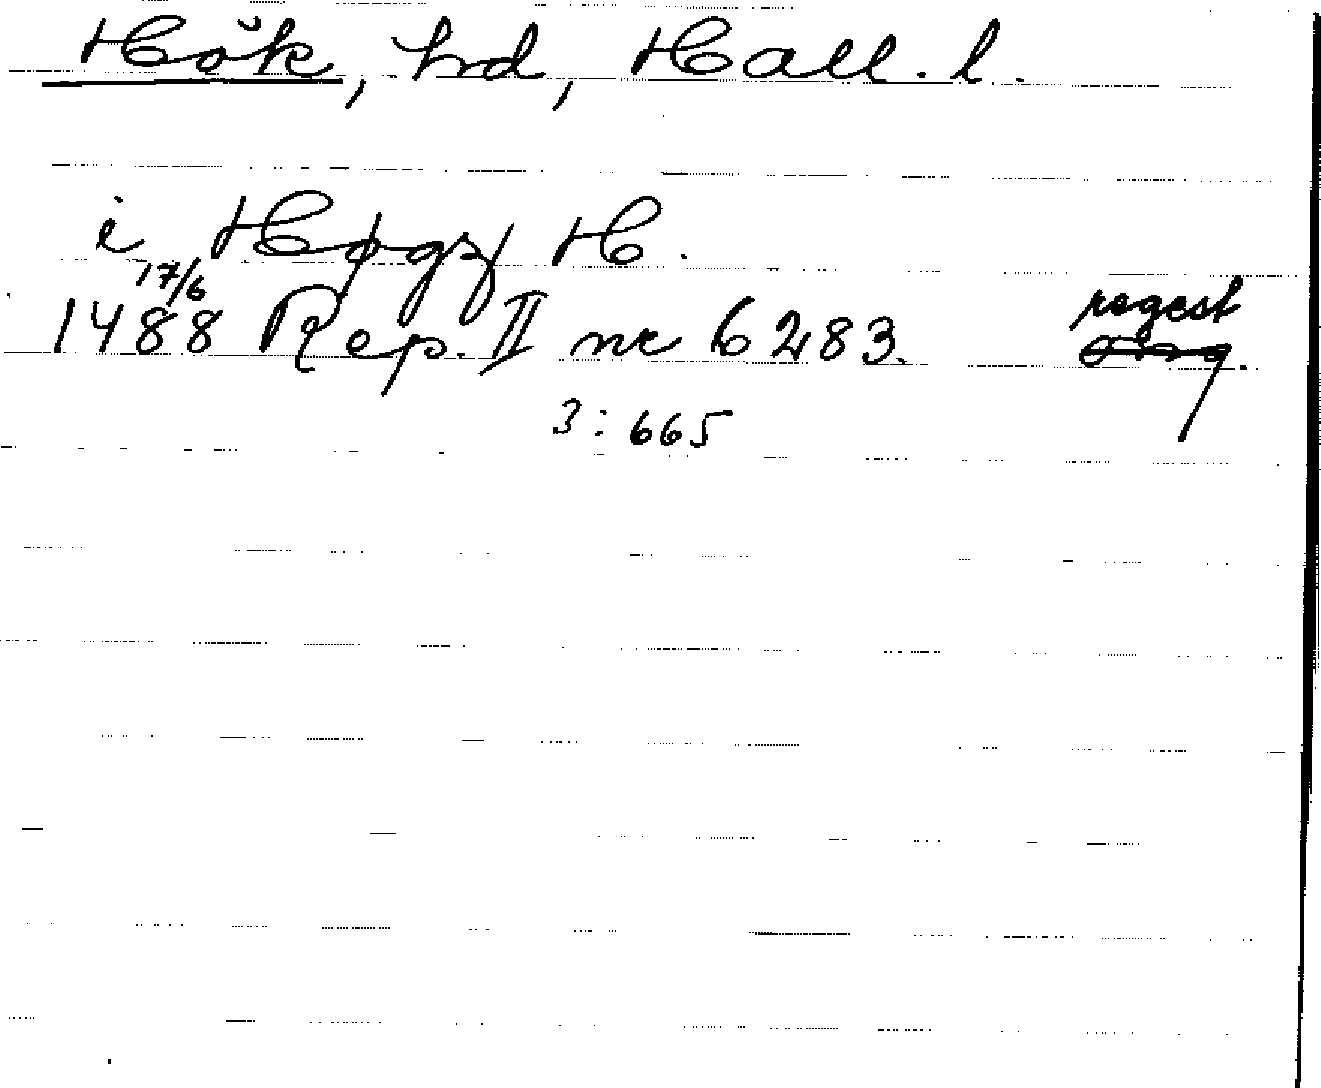 Hök, hd, Hall. l.
i Høgz H.
17/6
1488 Rep. II nr 6283. regest
3:665